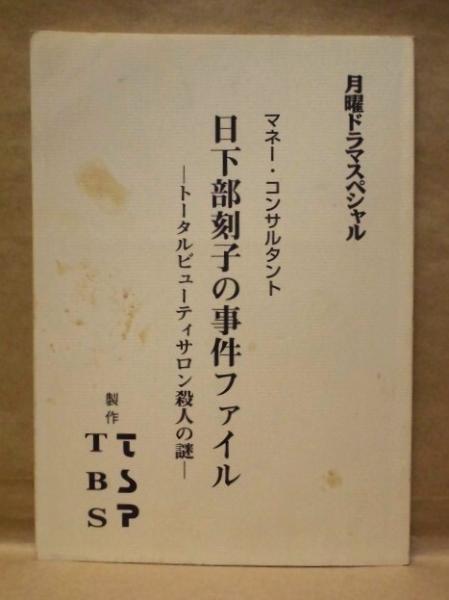 月曜ドラマスペシャル
マネー・コンサルタント
日下部刻子の事件ファイル
―トータルビューティサロン殺人の謎―
製作
TSP
TBS